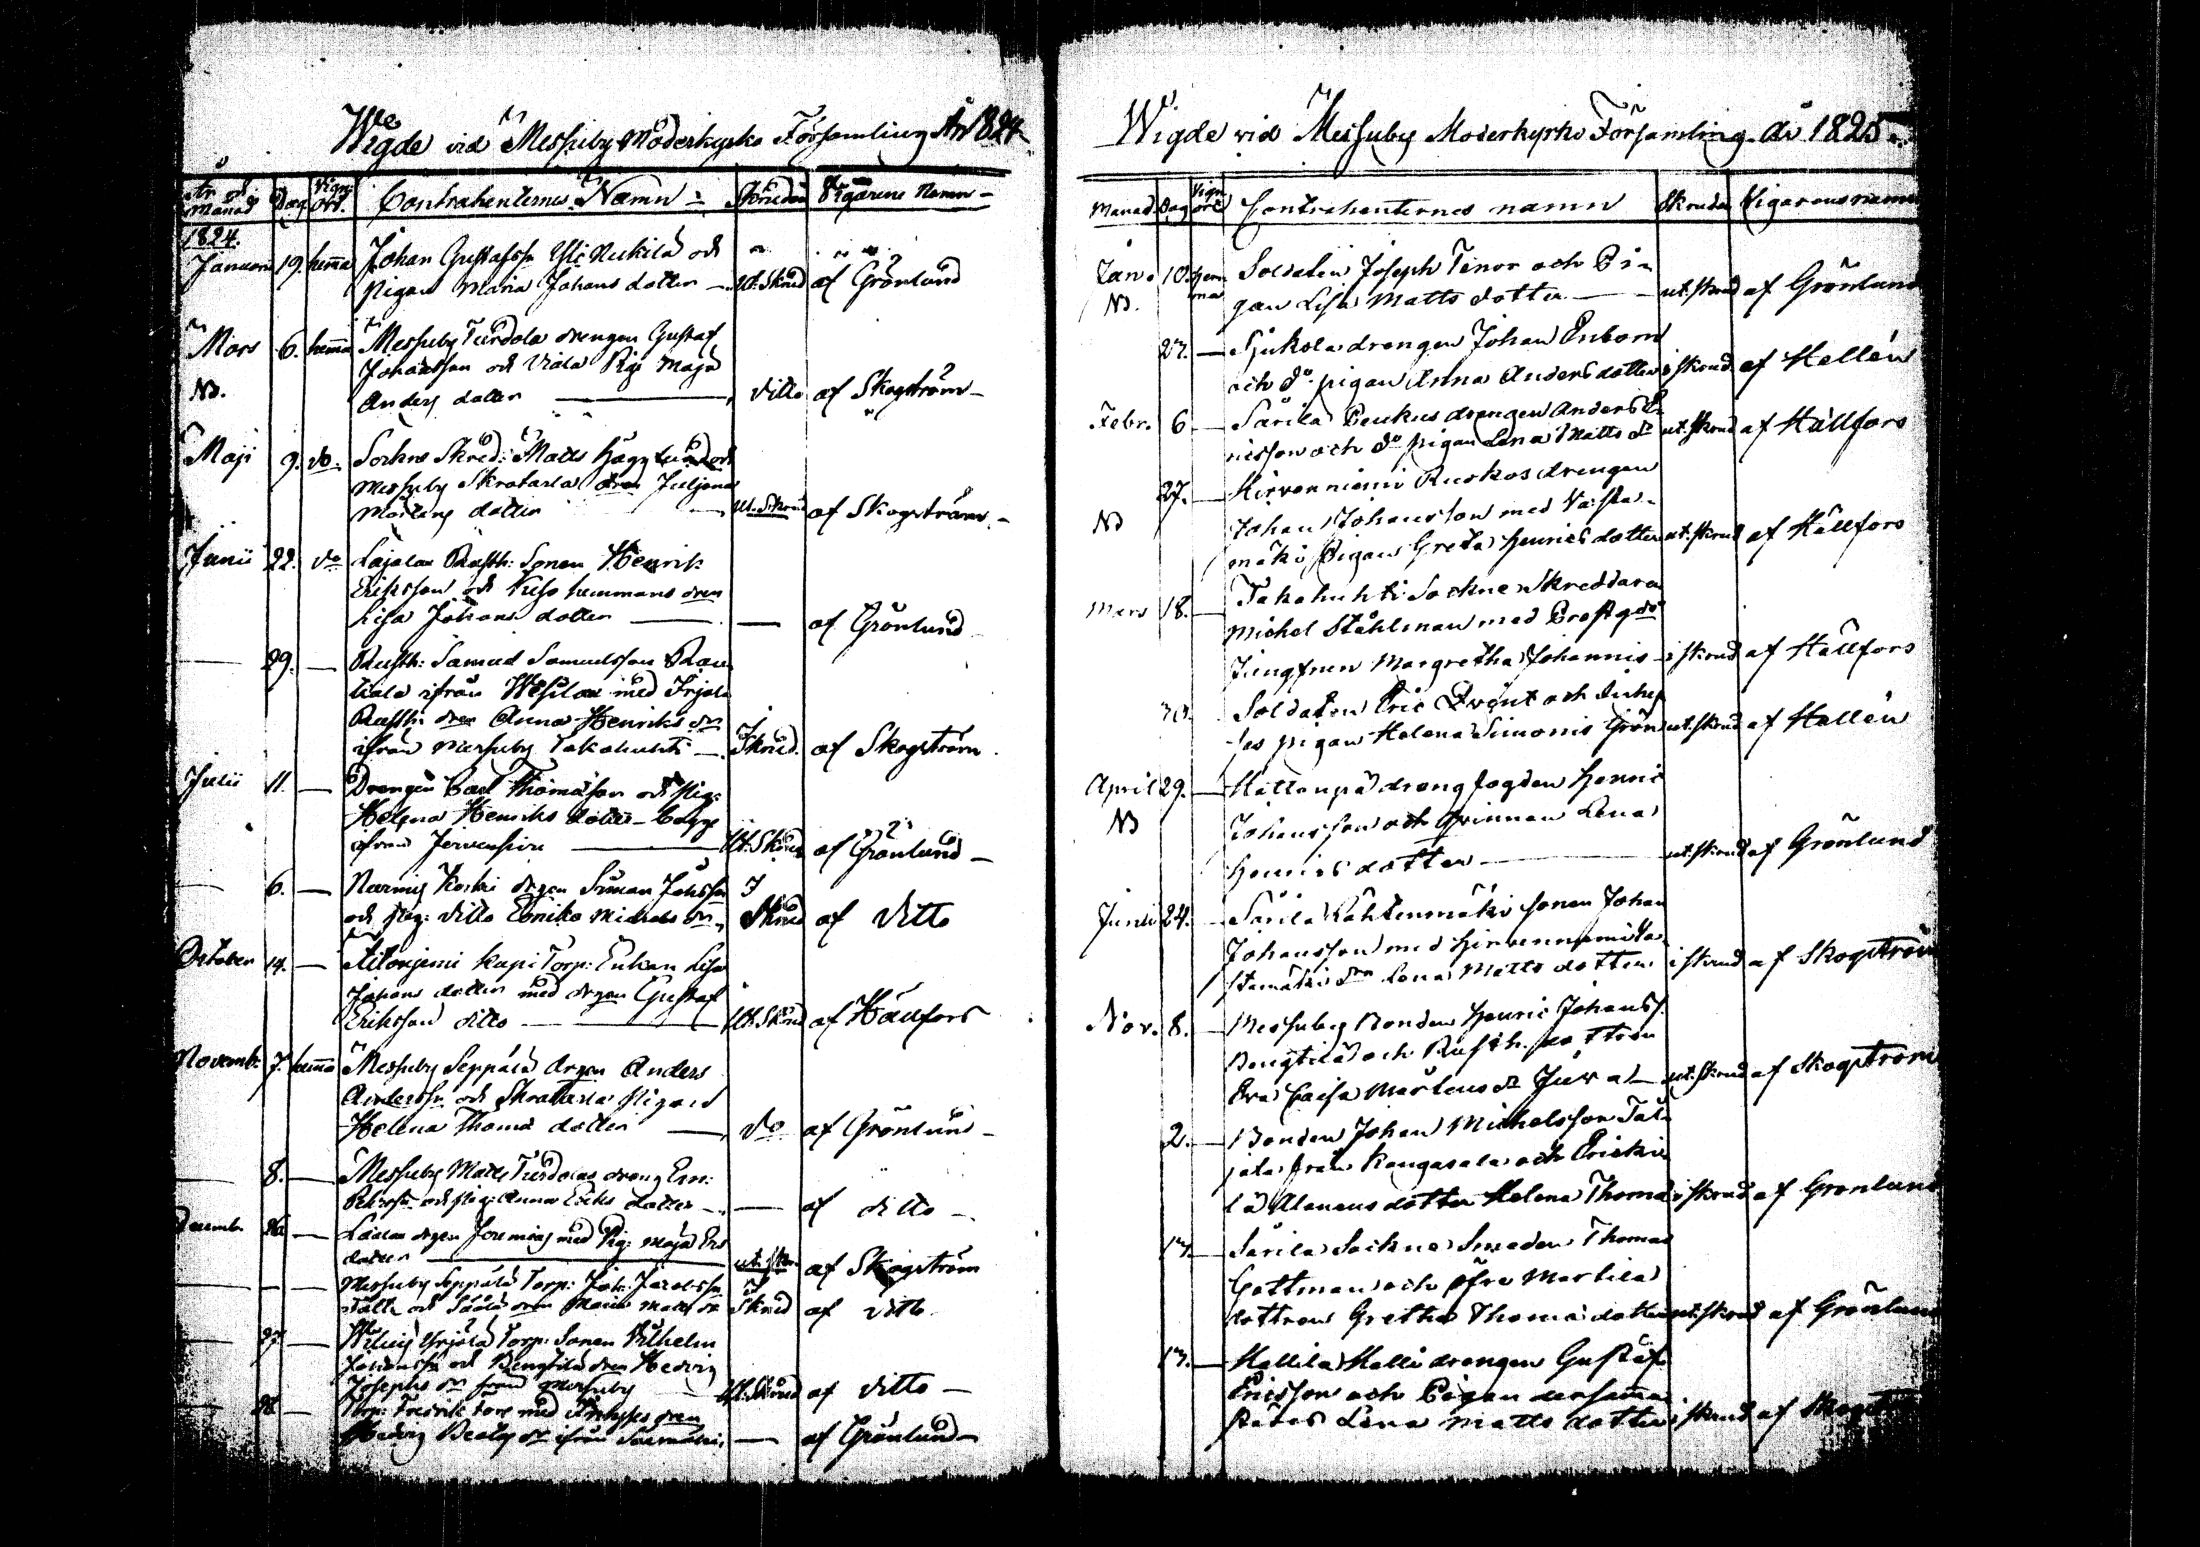 Wigde vid Messuby Moderkyrko Församling År 1824
År och Månad Dag Vign: ort. Contrahenternes Namn Skruden Vigarens Namn
1824.
Januari 19. hema Johan Gustafsson och
pigan Maria Johans dotter ut. Skrud af Grönlund
Mars 6. hema Messuby Turdola drengen Gustaf
Johansson och Viala Pig. Maja
NB. Anders dotter ditto af Skogström
Maji 9. do. Sockne Skred: Matts Hägglund och
Messuby Skratarla dren Juljana
Mårtens dotter ut. Skrud af Skogström
Junii 22. do Lajalax Rusth: Sonen Henrik
Eriksson och hemmans dren
Lisa Johans dotter — af Grönlund
29. — Rusth: Samuel Samuelsson Rau
tiala ifrån Wesilax med Irjala
Rusth: dren Anna Henriks dr
ifrån Messuby Takahuhti I Skrud. af Skogström
Julii 11. — Drengen Carl Thomasson och Pig:
Helena Henriks dotter
ifrån Jervensivu Ut. Skrud af Grönlund
6. — Koski drgen Simon Johansson I
och pig: ditto Michels dr Skrud af ditto
October 14. — Aitoniemi Kapi Torp: Enkan Lisa
Johans dotter med drgen Gustaf
Eriksson ditto Ut. Skrud af Hällfors
Novemb: 7. hema Messuby Seppälä drgen Anders
Andersson och Skratarla pigan
Helena Thomæ dotter do af Grönlund
8. — Messuby Matts Turdolas dreng
och pig: Anna Eriks dotter — af ditto
Decemb. 26. — drgen med Pig: Maja Ers
dotter ut skr. af Skogström
— — Messuby Seppälä Torp: Joh: Jacobsson I
och dren Maria Matts dr Skrud af ditto
27. — Yrjölä Torp: Sonen Wilhelm
Johansson och Bengtilä dren Hedvig
Josephs dr från Messuby Ut. Skrud af ditto
28. — Torp: Fredrik med dren
Hedvig dr ifrån — af Grönlund
Wigde vid Messuby Moderkyrko Församling år 1825.
Månad Dag Vign ort Contrahenternes namn Skruden Vigarens namn
Jan. 10. hem Soldaten Joseph Tenor och Pi-
NB. ma gan Lisa Matts dotter ut. skrud af Grönlund
27. — Sjukola drengen Johan Enbom
och do. pigan Anna Anders dotter i skrud af Hellén
Febr. 6 — Särilä Peukus drengen Anders E-
ricsson och do pigan Lena Matts dr ut. skrud af Hällfors
27. — Hirvenniemi Ruskos drengen
NB Johan Johansson med Vasta-
mäki Pigan Greta Henrics dotter ut. skrud af Hällfors
Mars 18. — Takahuhti Sockne Skreddaren
Michel Ståhlman med Prostgds
Jungfrun Margretha Johannis i skrud af Hällfors
30. Soldaten Eric och
pigan Helena Simonis Grön ut. skrud af Hellén
April 29. — Hattanpä drengfogden Henric
NB Johansson och Qvinnan Lena
Henrics dotter ut. skrud af Grönlund
Junii 24. — Särilä Lähtenmäki sonen Johan
Johansson med Hirvenniemi Va-
stamäki drn Lena Matts dotter i skrud af Skogström
Nov. 8. — Messuby Bonden Henric Johanss.
Bengtilä och Rusth. dottren
Eva Caisa Mårtens dr Juva ut. skrud af Skogström
2. — Bonden Johan Michelsson Tal-
jala från Kangasala och
lä dotter Helena Thomæ i skrud af Grönlund
13. — Särilä Sockne Smeden Thomas
Gottman och Öfre Martila
dottren Gretha Thomæ dotter ut. skrud af Grönlund
13. — Hallila Halli drengen Gustaf
Ericsson och Pigan dersamma
städes Lena Matts dotter i skrud af Skogst